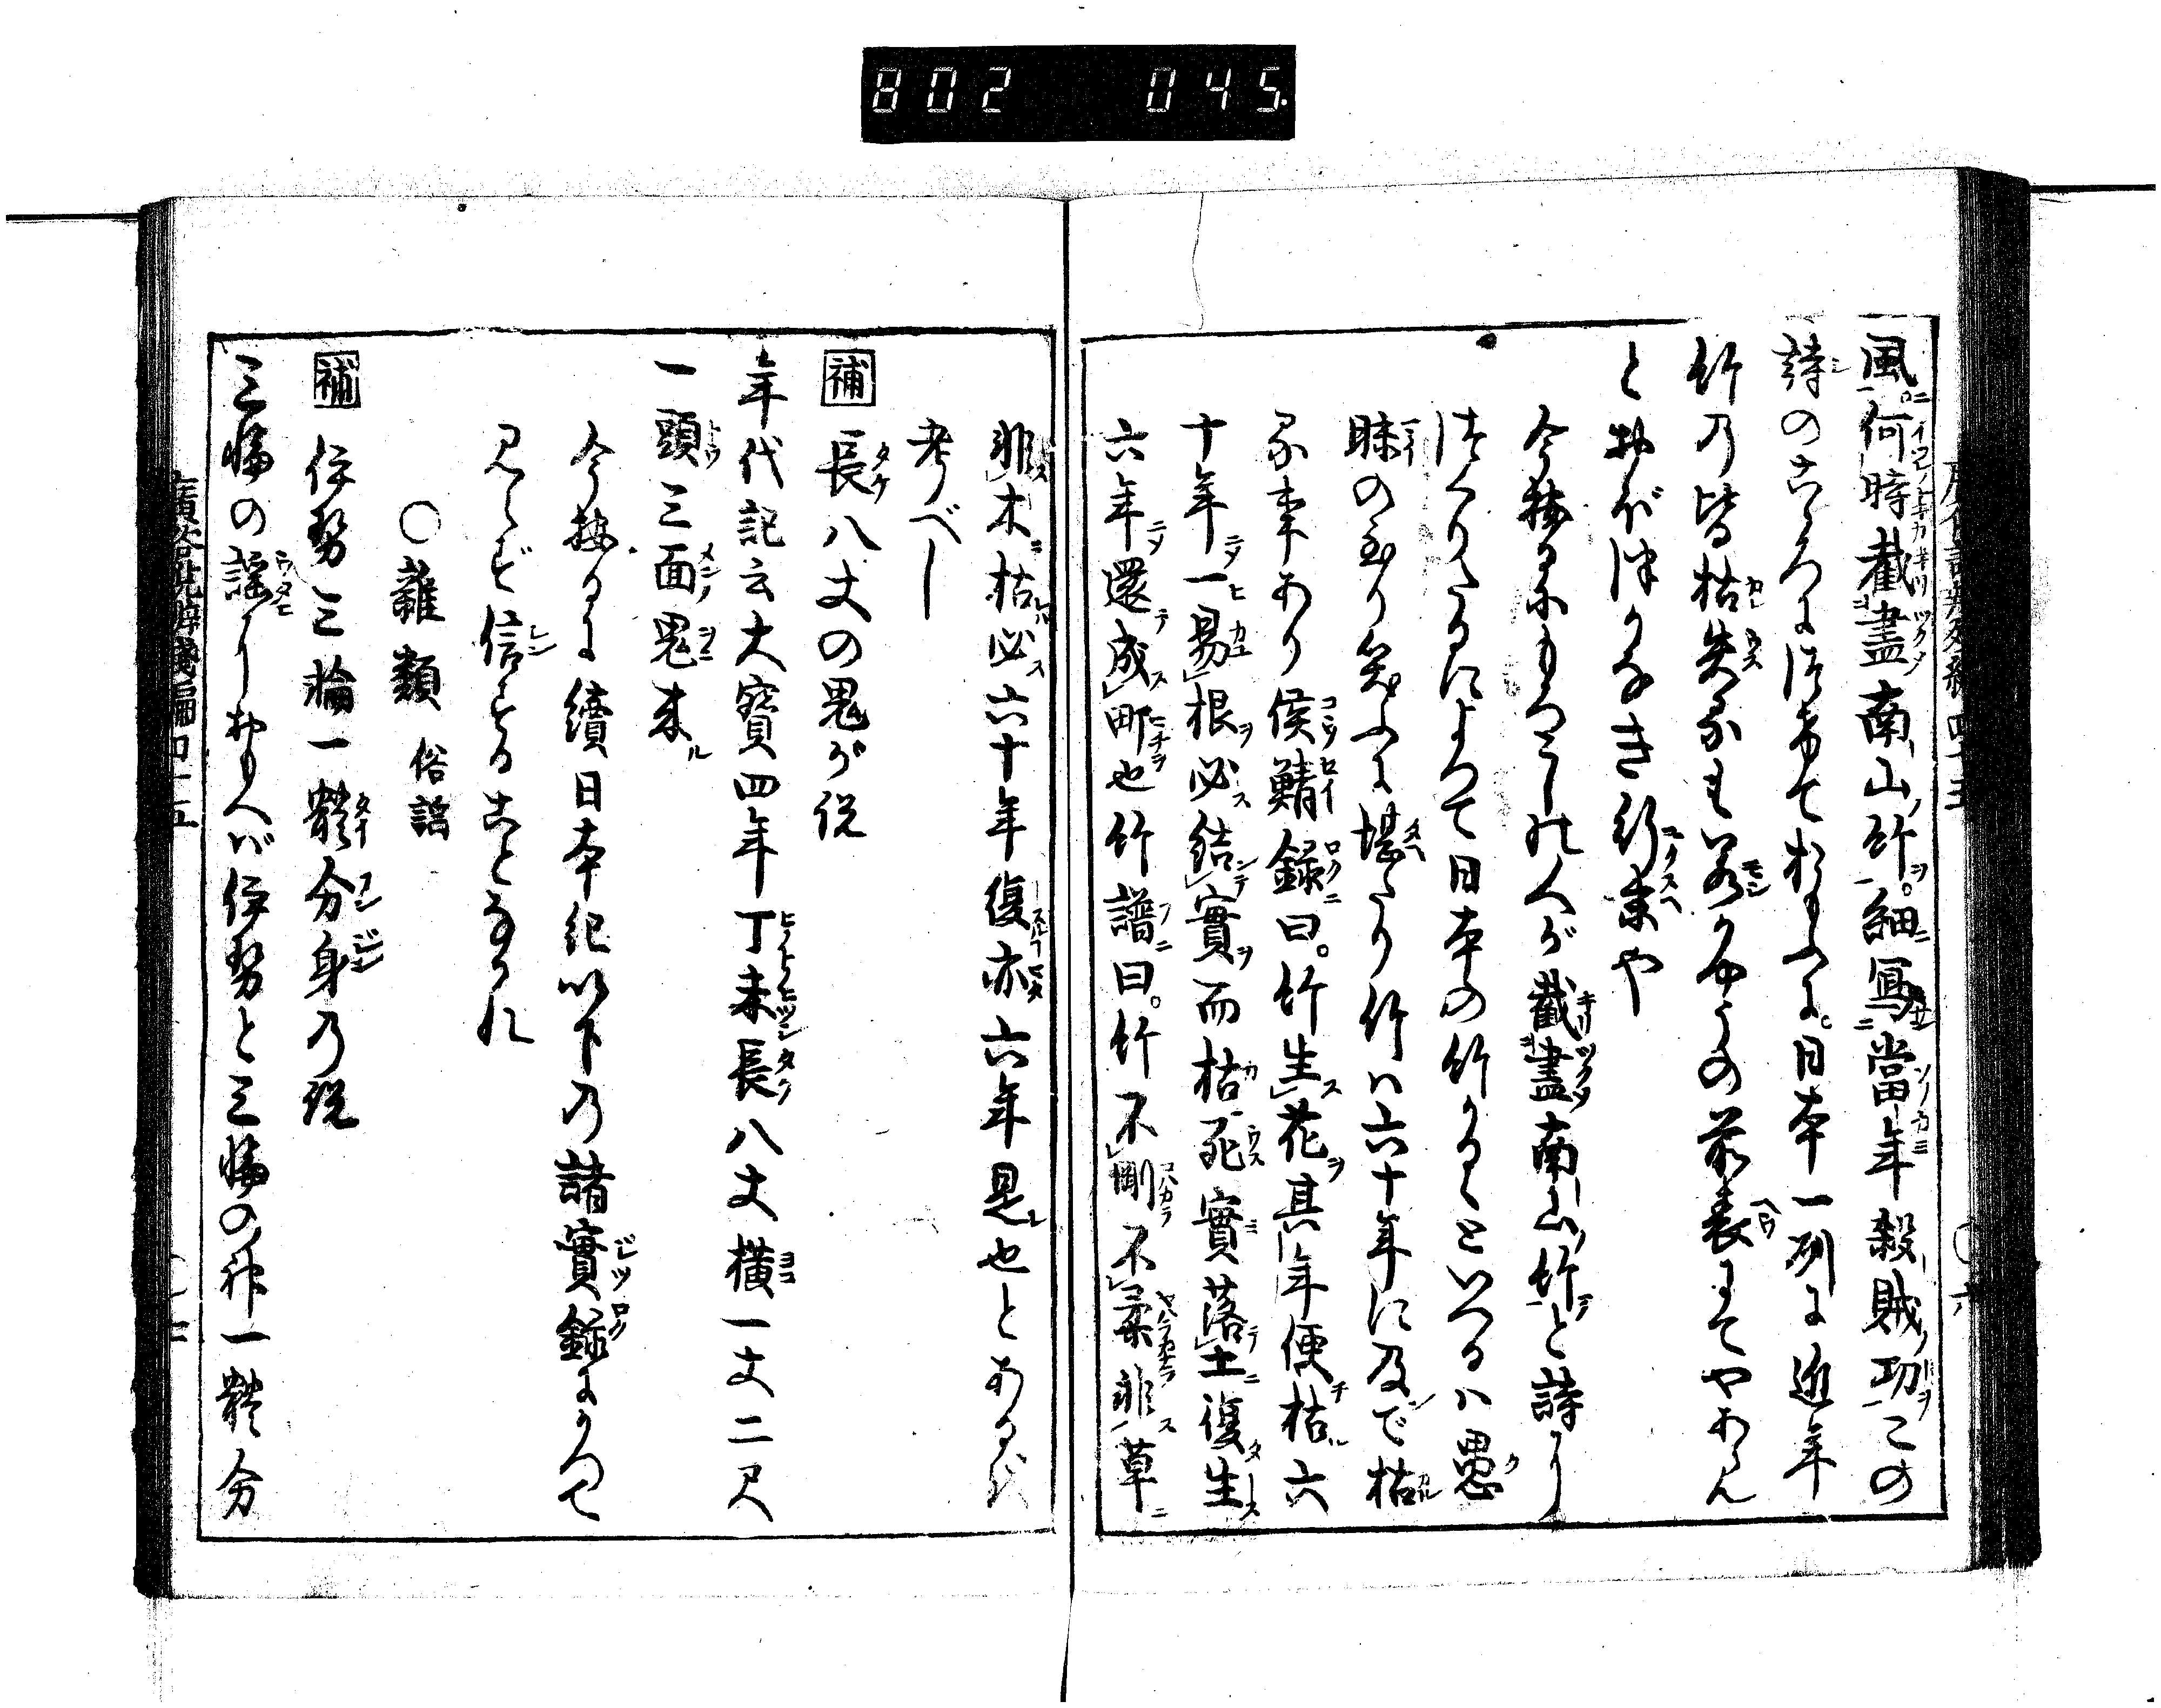 802 045
風何時截盡南山竹。細寫當年殺賊功この
詩のこゝろにつきておもふに。日本一州に近年
竹の皆枯失るも若かゆうの前表にてやあらん
とおぼつかなき行末や
今按るにもろこしの人が截盡南山竹と詩に
つくりたるによつて日本の竹かるゝといへるハ愚
昧の至り笑ふに堪たり竹ハ六十年に及で枯
る事あり侯鯖録曰。竹生花其年便枯六
十年一易根必結實而枯死實落土復生
六年還成町也竹譜曰。竹不剛不柔非草
非木枯必六十年復亦六年見也とあるを
考べし
補 長八丈の鬼が説
年代記云大寶四年丁未長八丈横一丈二尺
一頭三面鬼来
今按るに續日本紀以下の諸實録にかつて
見へず信ずることなかれ
○雜類 俗謡
補 伊勢三輪一體分身の説
三輪の謡におもへバ伊勢と三輪の神一體分